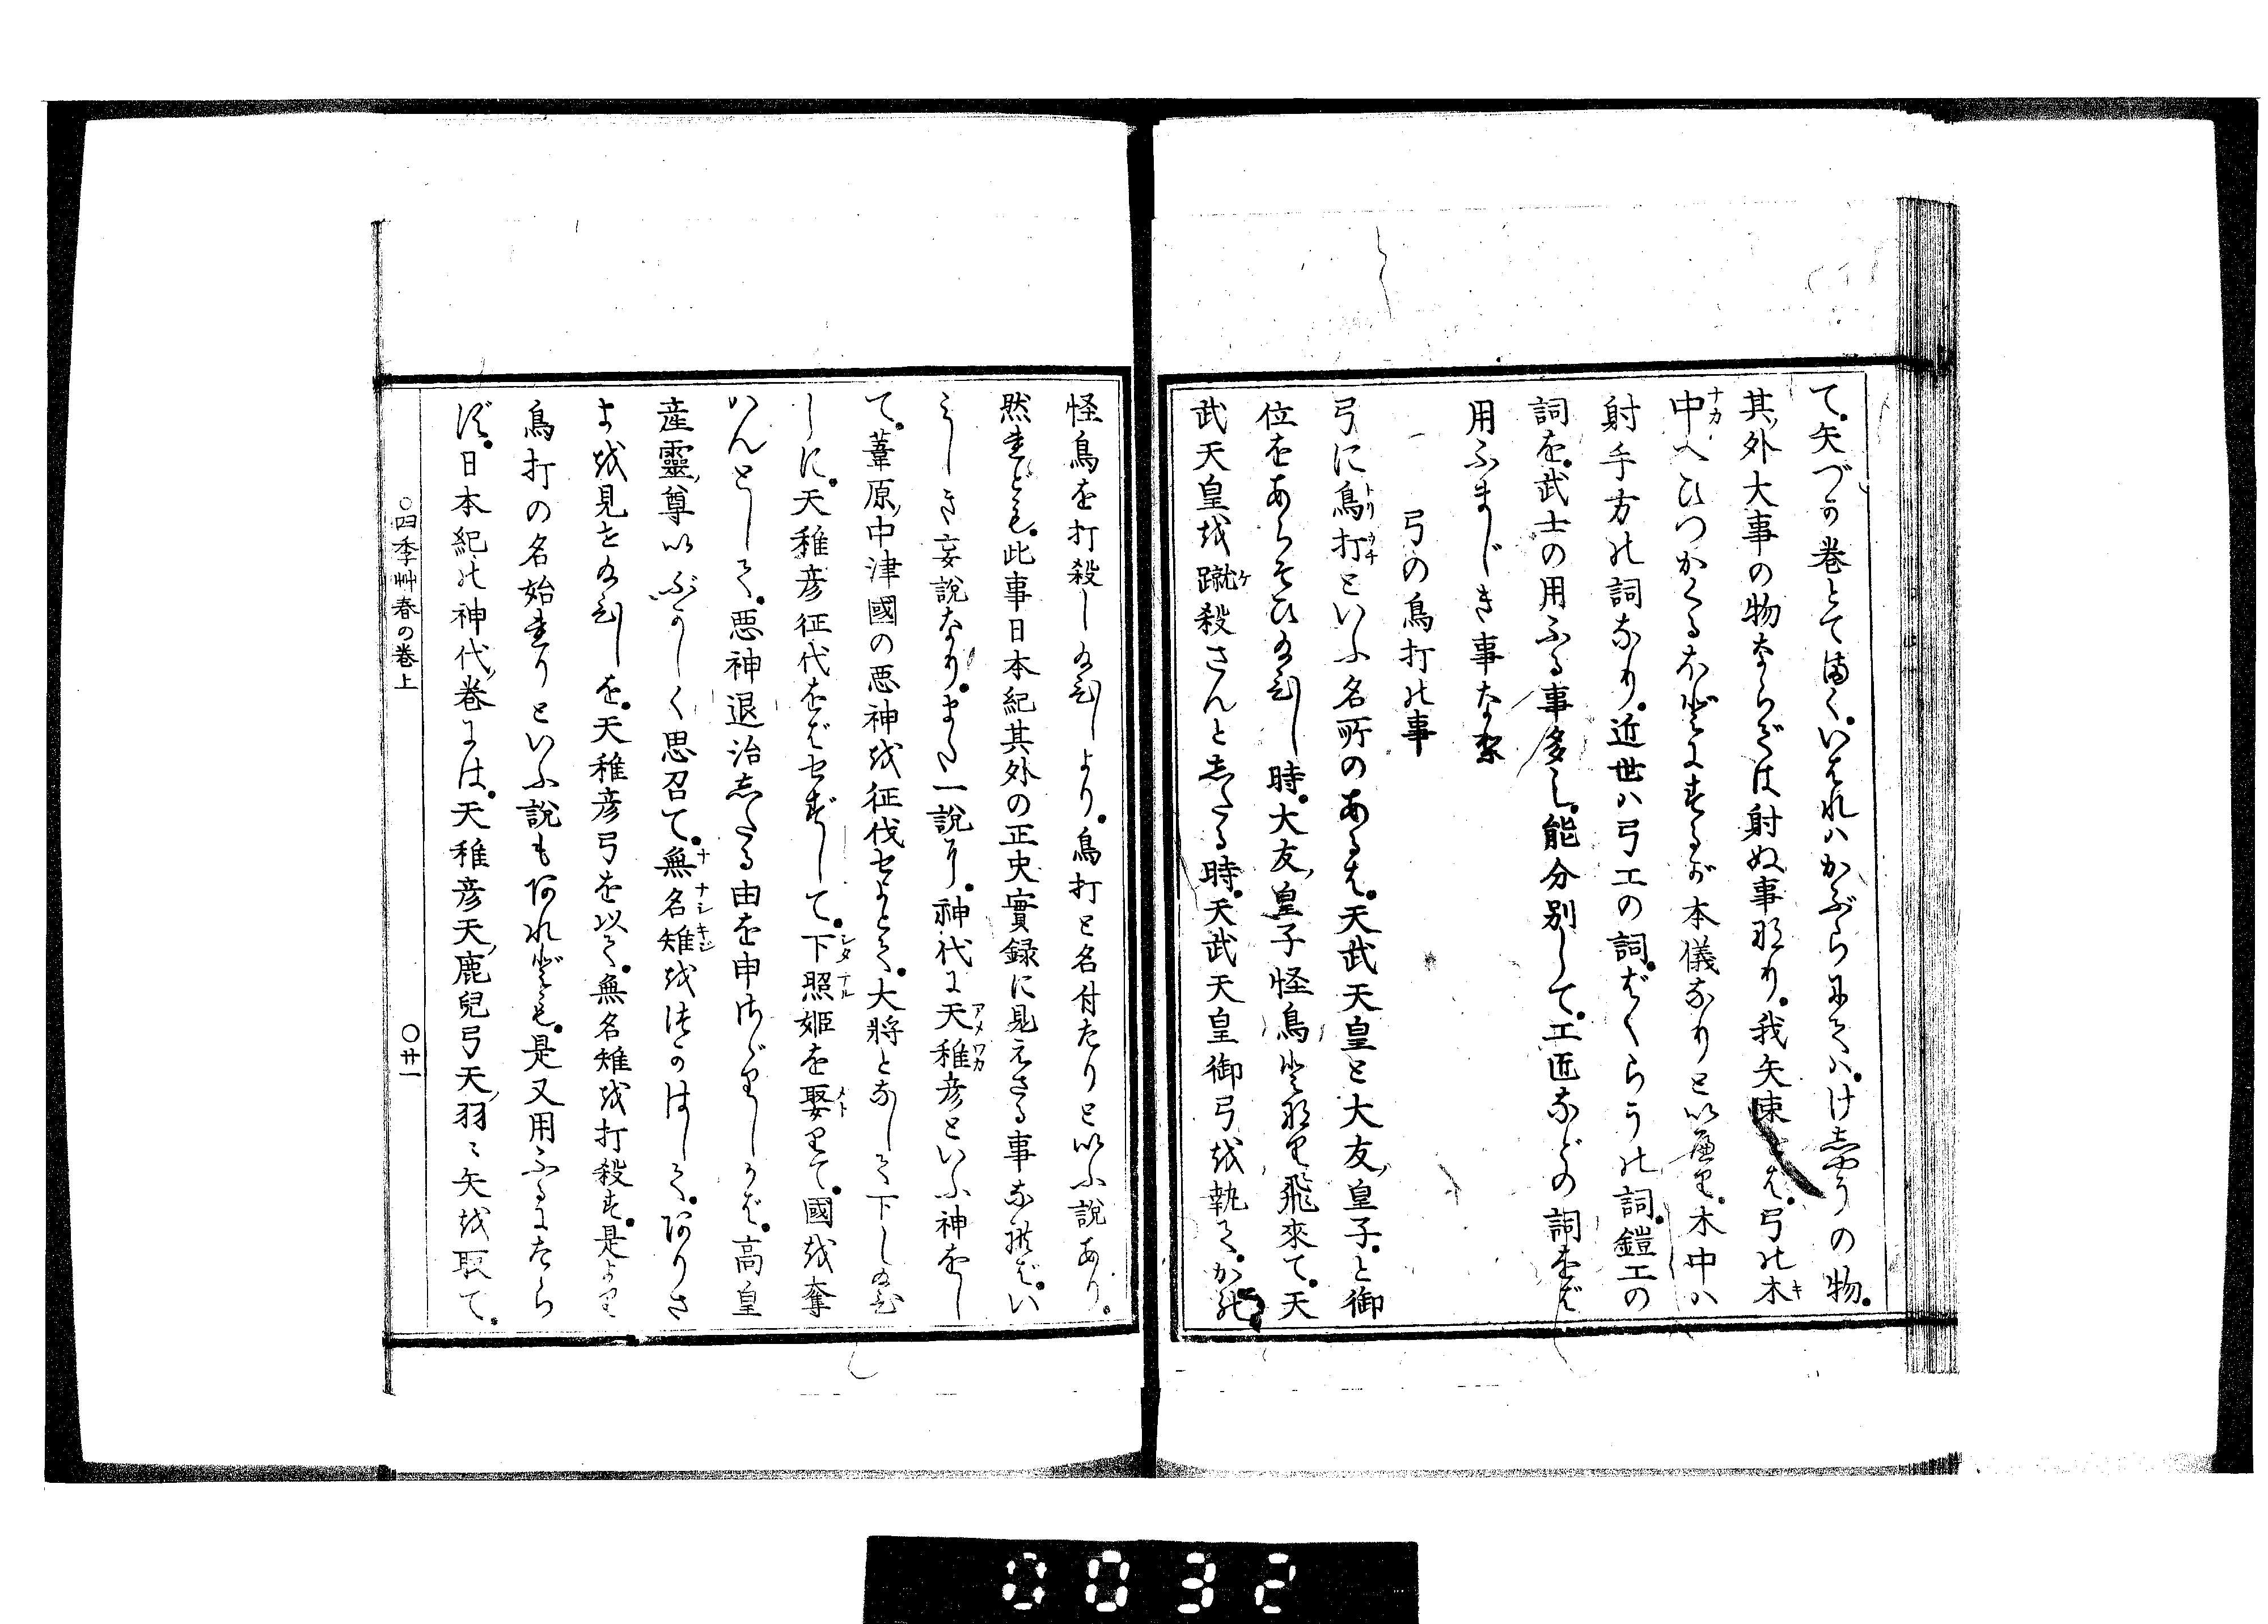 て。矢づか巻とてまく。いはれハかぶらにてハ。けしやうの物。
其外大事の物ならでは射ぬ事なり。我矢束とは。弓の木
中へひつかくるほどにするが本儀なりといへり。木中ハ
射手方の詞なり。近世ハ弓工の詞。ばくらうの詞。鎧工の
詞を。武士の用ふる事多し。能分別して。工匠などの詞をば
用ふまじき事なり
一 弓の鳥打の事
弓に鳥打といふ名所のあるは。天武天皇と大友皇子と御
位をあらそひ給ひし時。大友皇子怪鳥となり飛來て。天
武天皇を蹴殺さんとしたる時。天武天皇御弓を執て。かの
怪鳥を打殺し給ひしより。鳥打と名付たりといふ説あり。
然れども。此事日本紀其外の正史實録に見えざる事なれば。い
ぶしき妄説なり。また一説に。神代に天稚彦といふ神をし
て。葦原中津國の悪神を征伐せよとて。大將となして下し給ひ
しに。天稚彦征伐をばせずして。下照姫を娶りて。國を奪
はんとして。悪神退治したる由を申さゞりしかば。高皇
産靈尊いぶかしく思召て。無名雉をつかはして。ありさ
まを見せ給ひしを。天稚彦弓を以て。無名雉を打殺す。是より
鳥打の名始れりといふ説もあれども。是又用ふるにたら
ず。日本紀の神代巻には。天稚彦天鹿兒弓天羽〻矢を取て。
○四季艸春の巻上
○廿一
0032